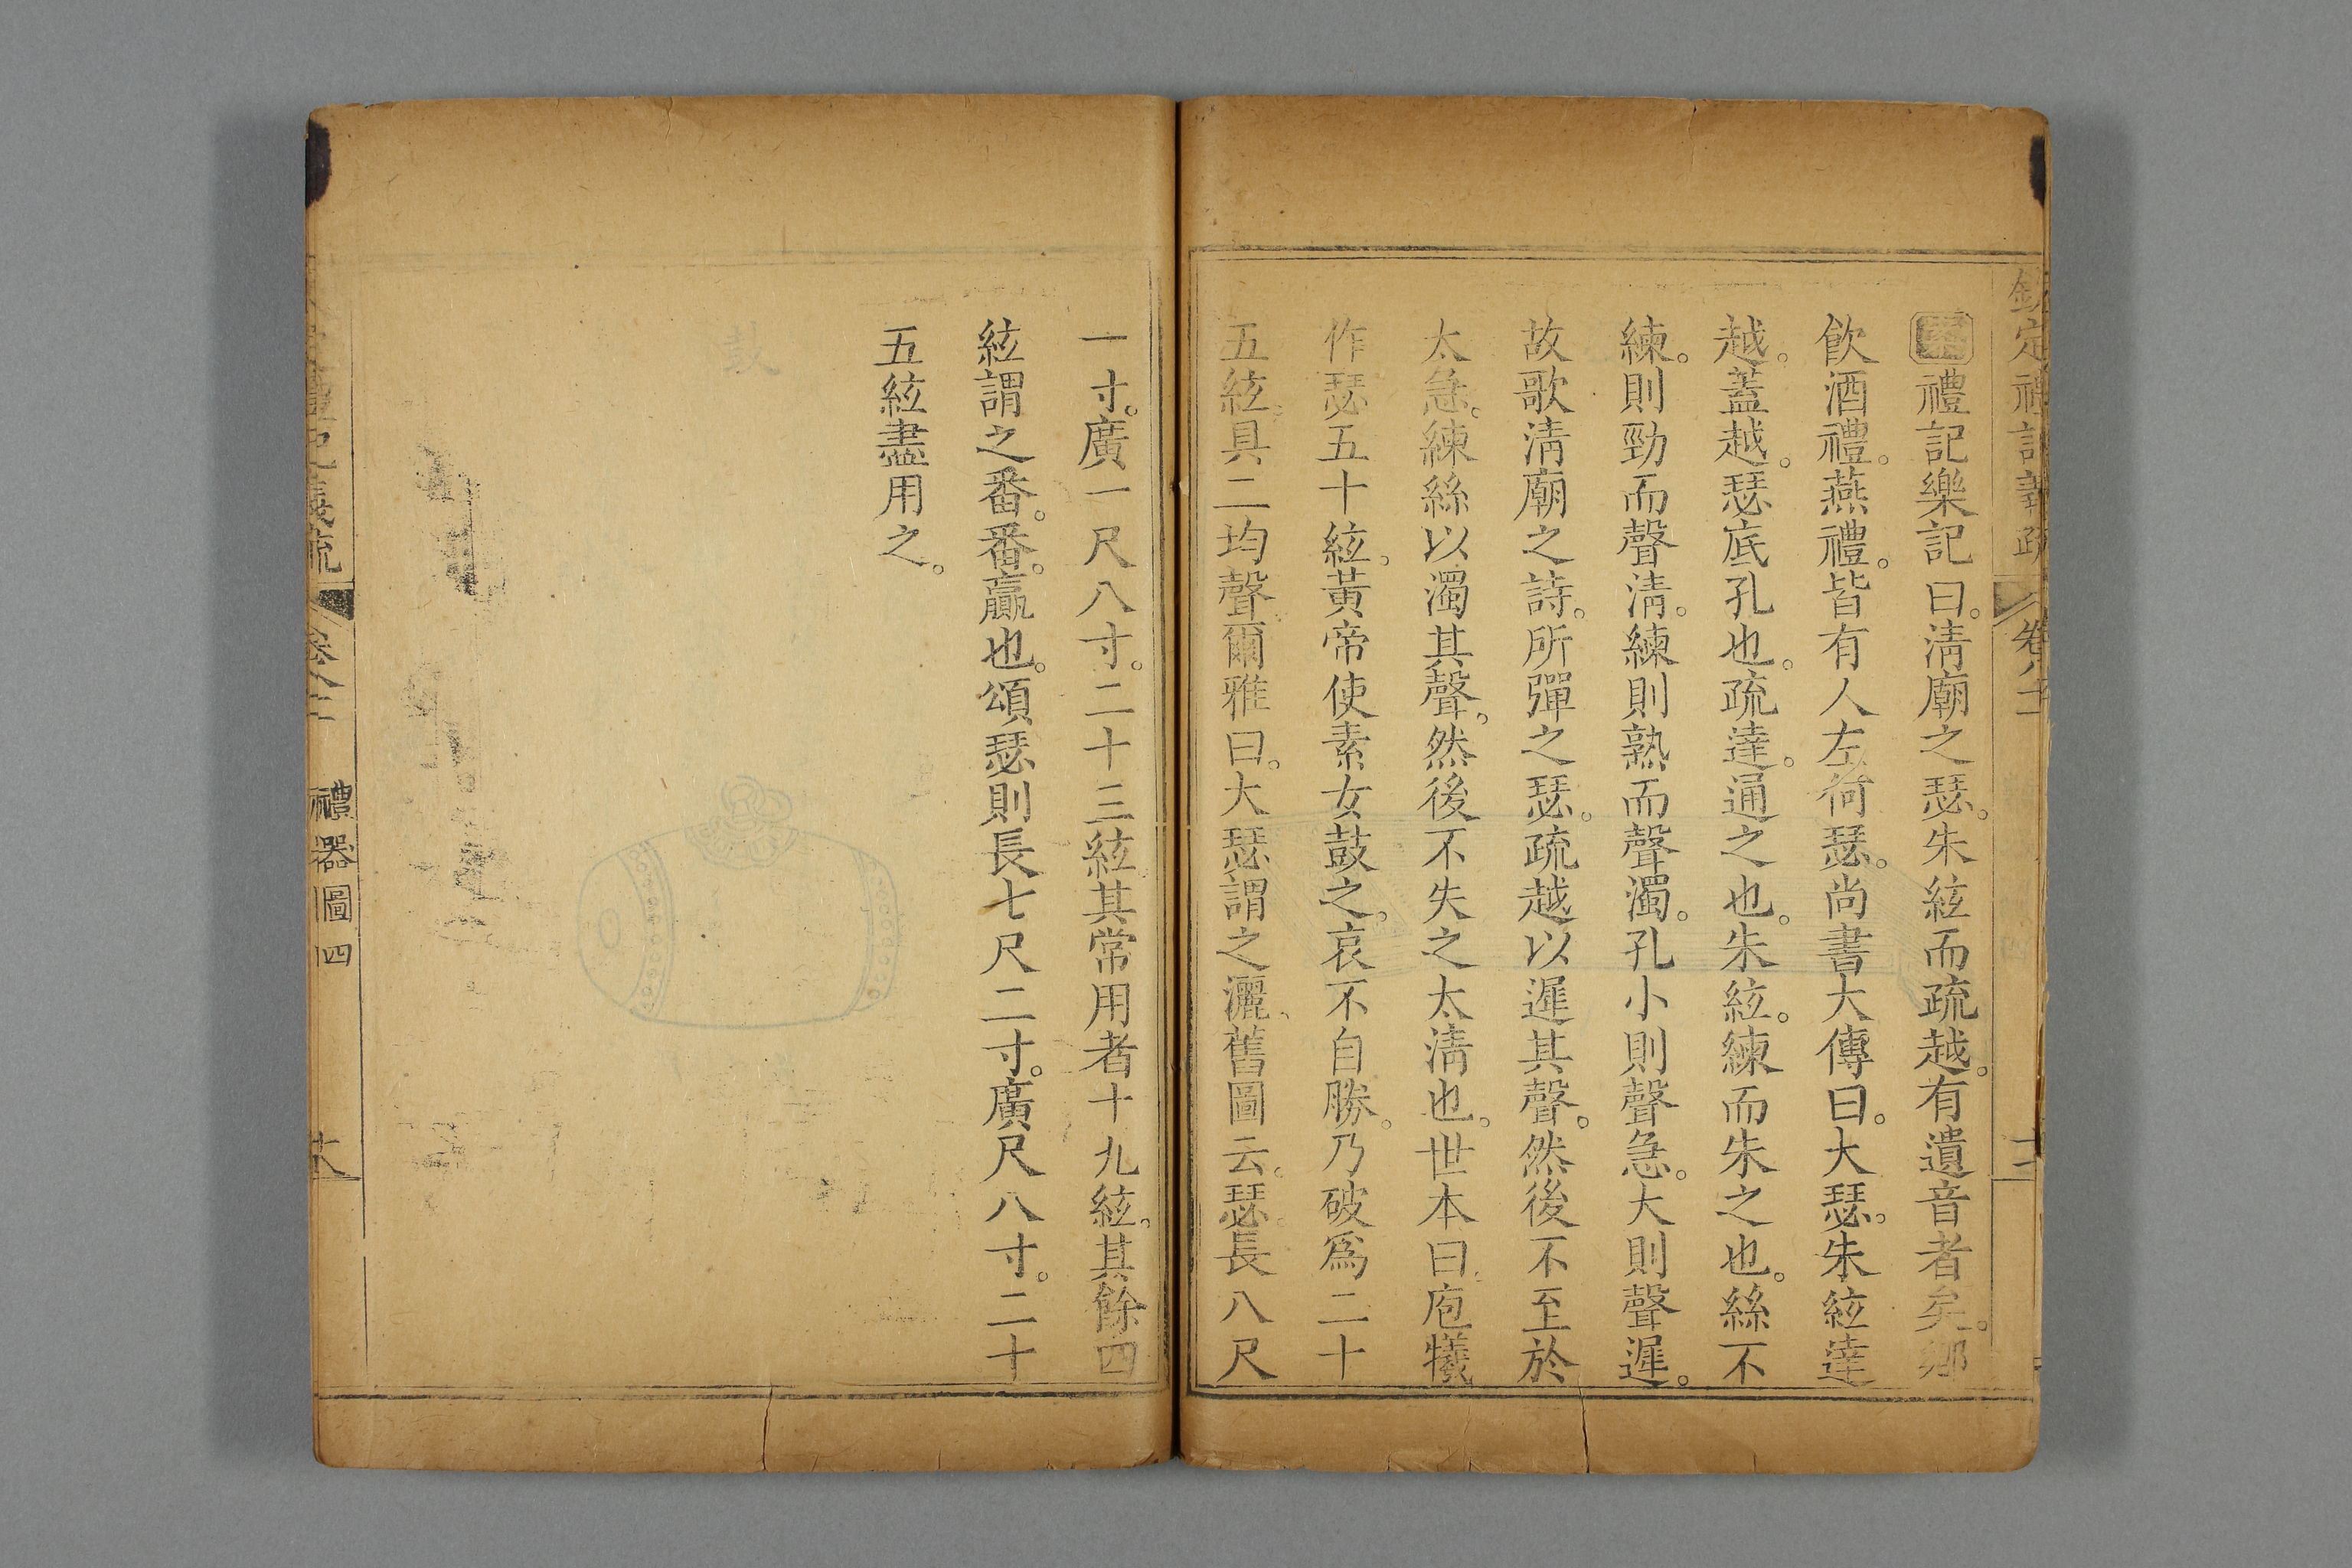 欽定禮記義疏 卷八十
禮記樂記曰。淸廟之瑟。朱絃而疏越。有遺音者矣。鄉
飮酒禮。燕禮。皆有人左荷瑟。尚書大傳曰。大瑟。朱絃達
越。蓋越。瑟底孔也。疏達。通之也。朱絃。練而朱之也。絲不
練。則勁而聲淸。練則熟而聲濁。孔小則聲急。大則聲遲。
故歌淸廟之詩。所彈之瑟。疏越以遲其聲。然後不至於
太急。練絲以濁其聲。然後不失之太淸也。世本曰。庖犧
作瑟五十絃。黃帝使素女鼓之。哀不自勝。乃破爲二十
五絃。具二均聲爾雅曰。大瑟謂之灑。舊圖云。瑟長八尺
一寸。廣一尺八寸。二十三絃其常用者十九絃。其餘四
絃謂之番。番。贏也。頌瑟則長七尺二寸。廣尺八寸。二十
五絃盡用之。
禮記義疏 卷八十 禮器圖四 十八